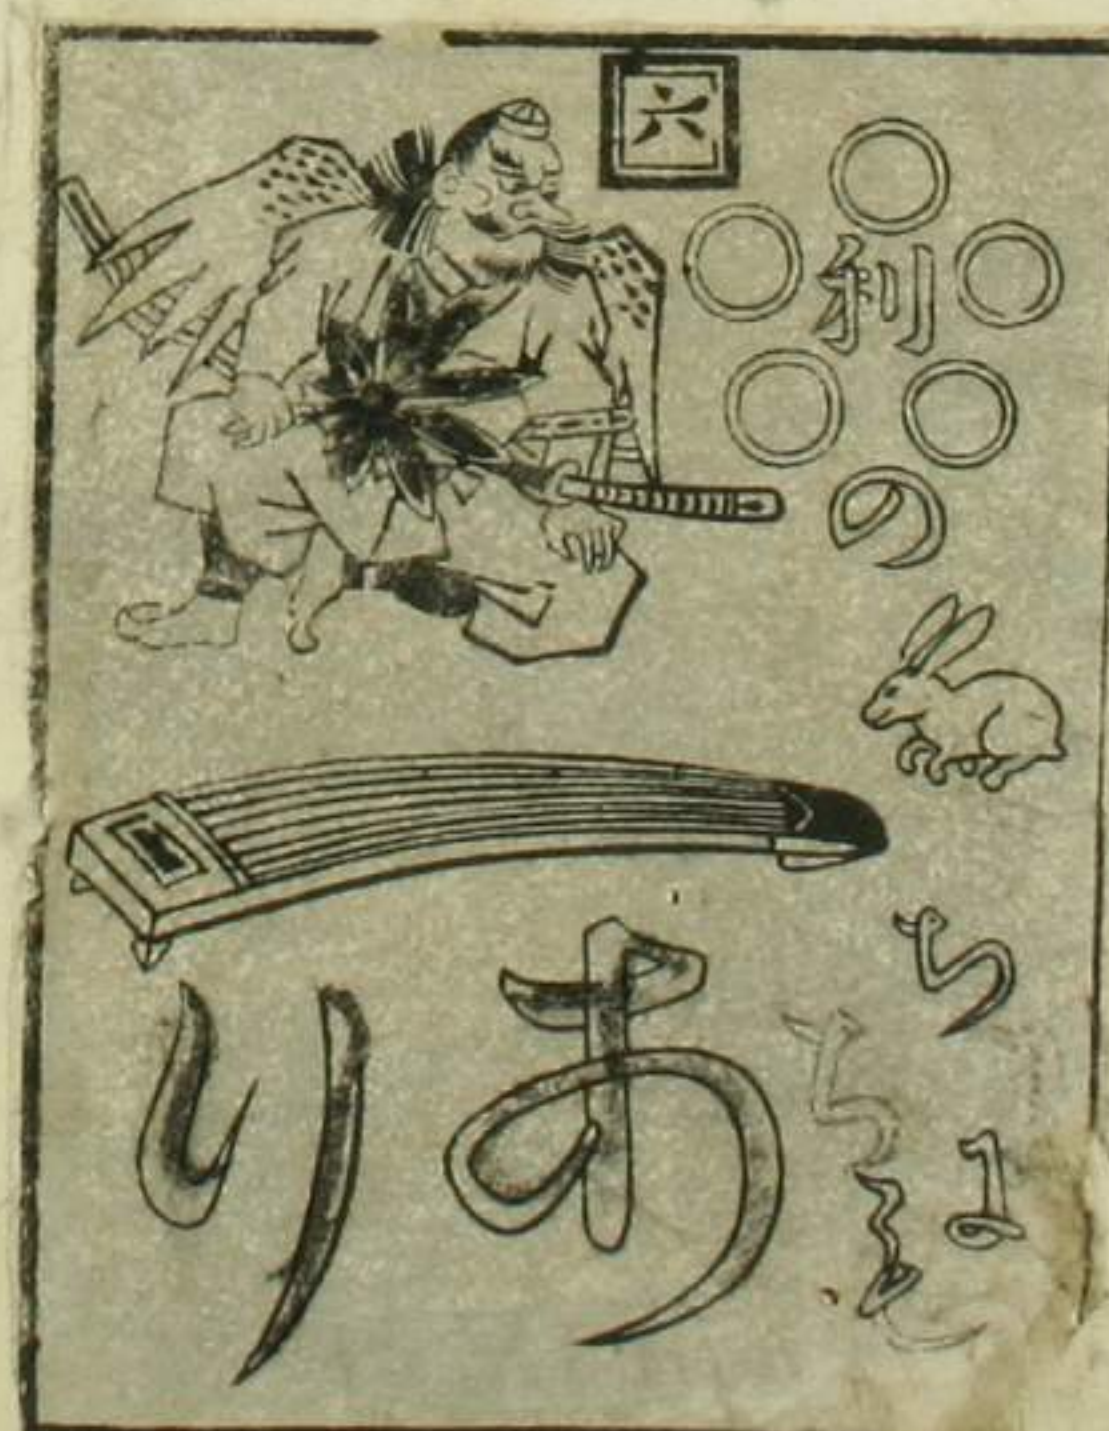 六
利の
ちよ
あり